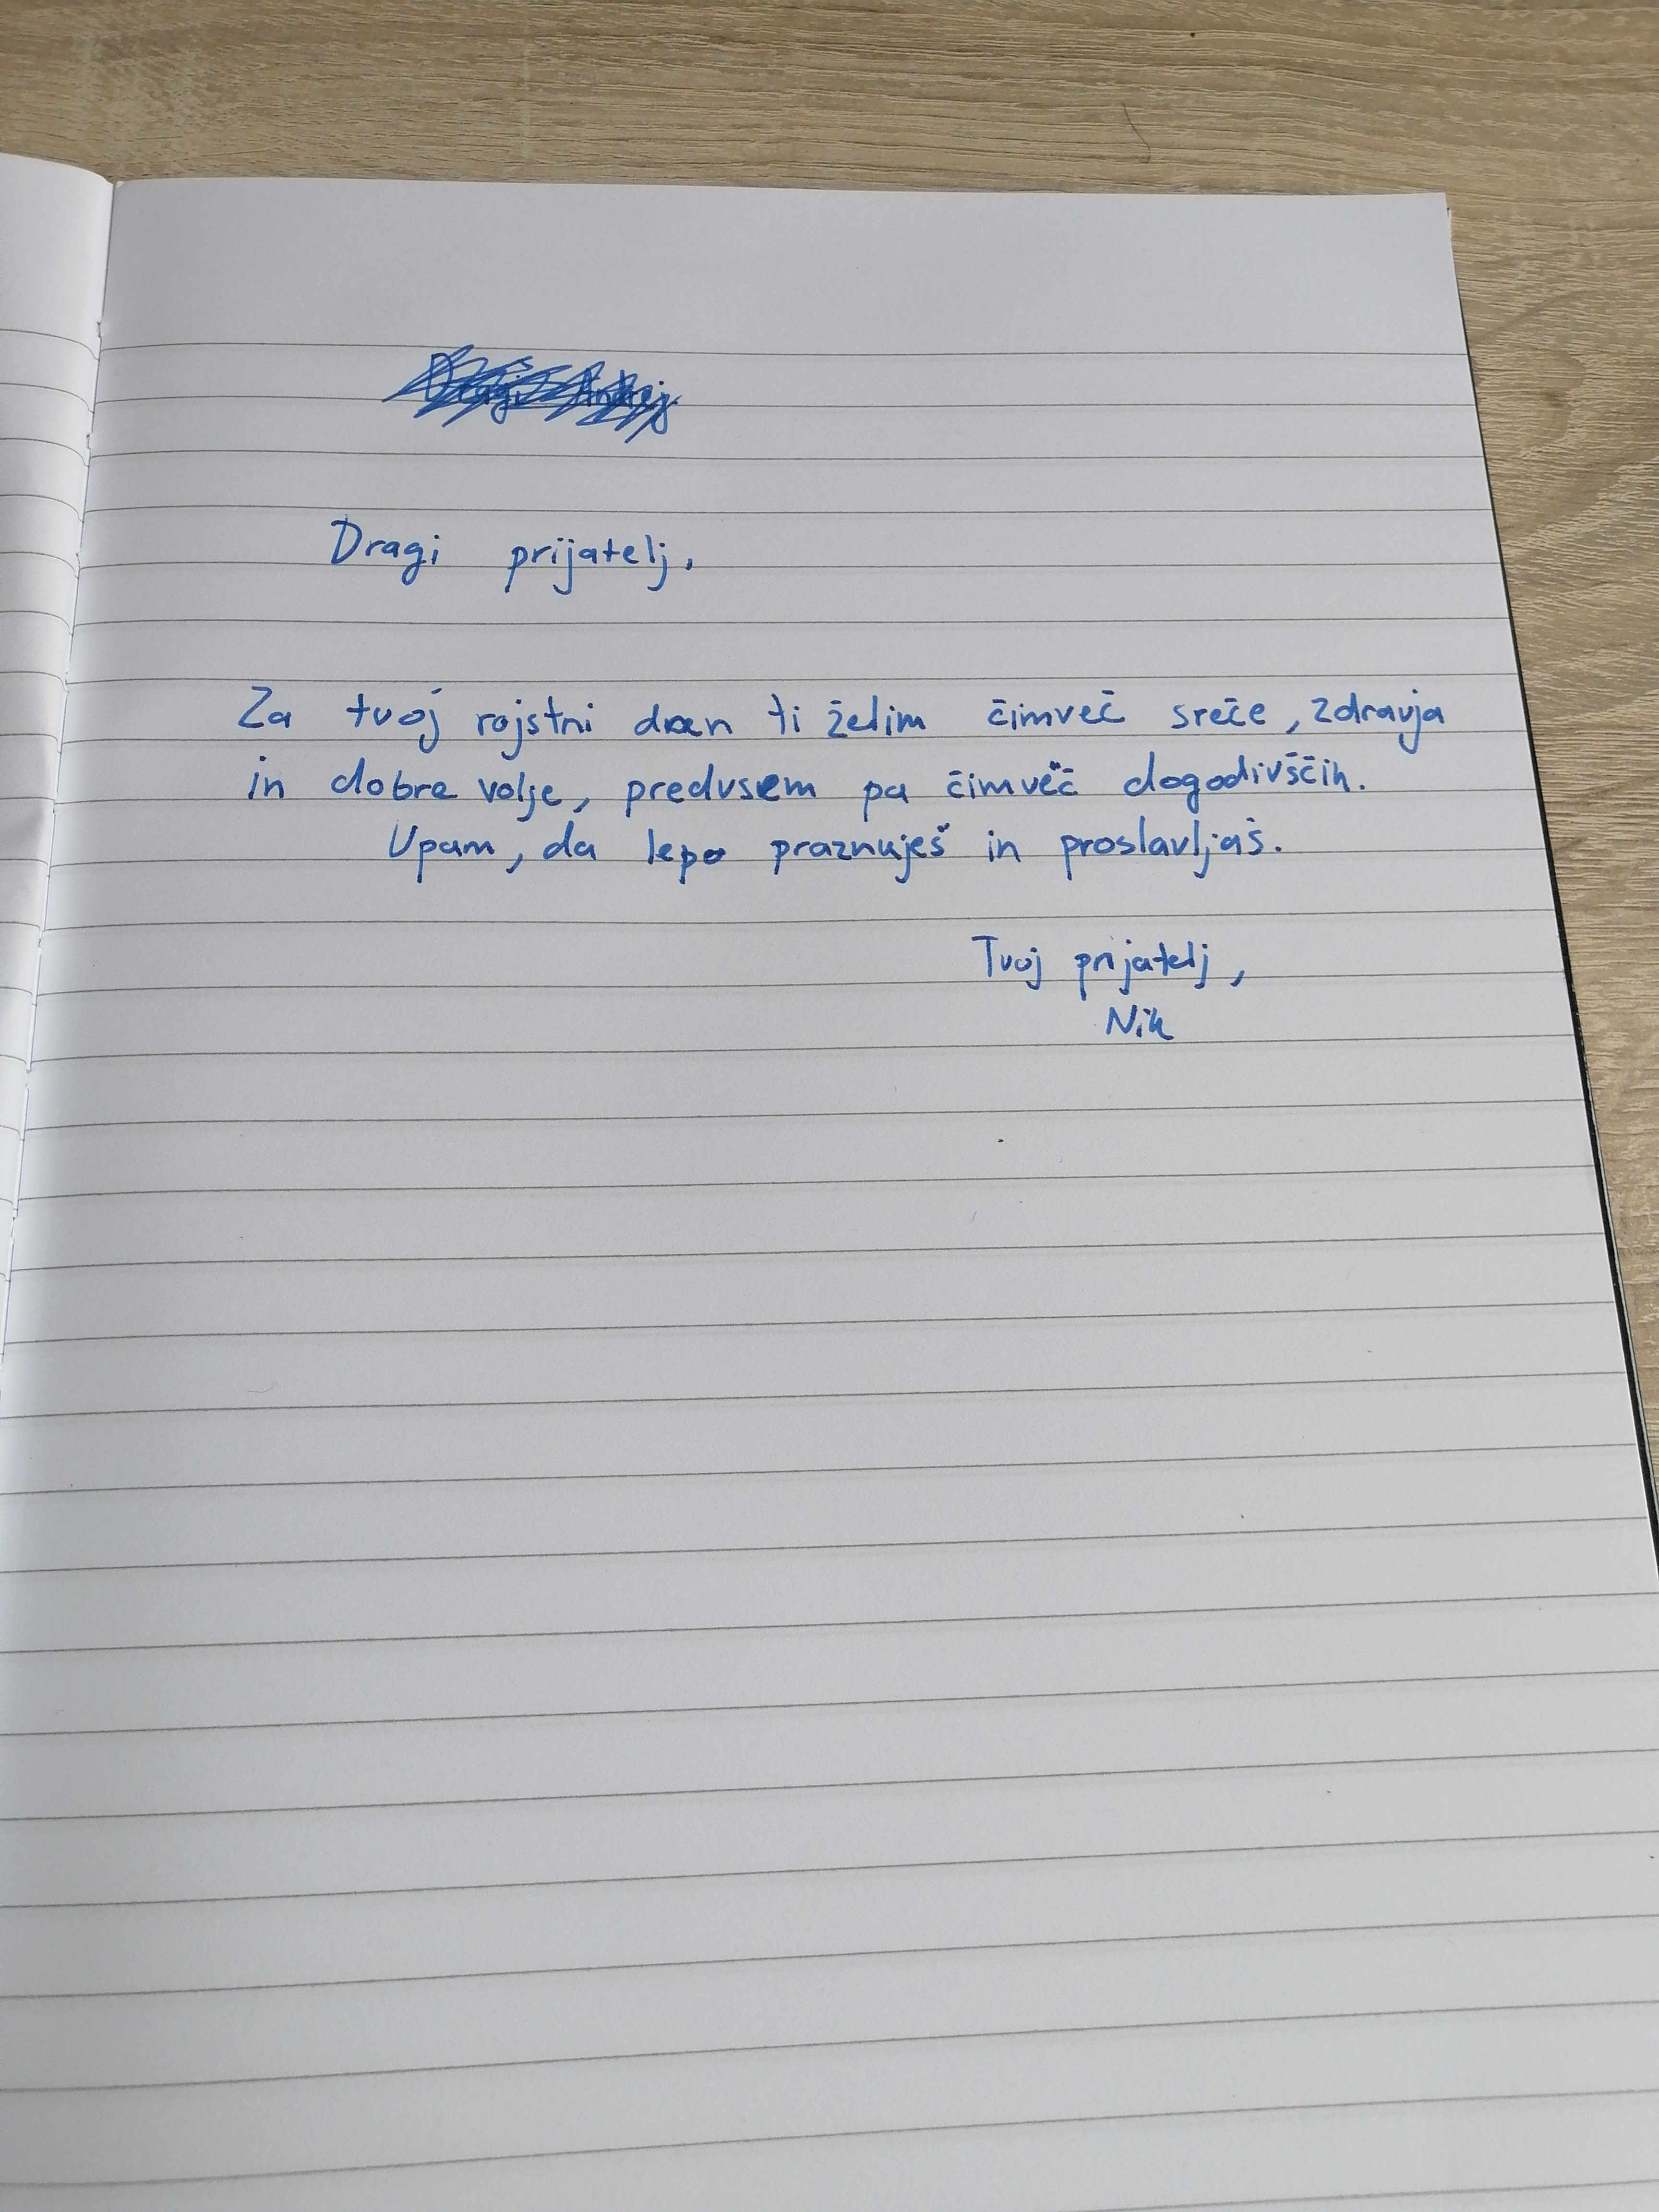 Dragi prijatelj,
Za tvoj rojstni dan ti želim čimveč sreče, zdravja
in dobre volje, predvsem pa čimveč dogodivščih.
Upam, da lepo praznuješ in proslavljaš.
Tvoj prijatelj,
Nik